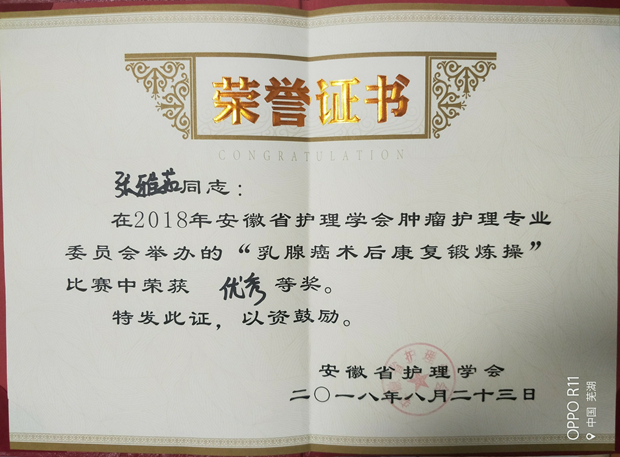 荣誉证书
CONGRATULATION
张雅茹同志：
在2018年安徽省护理学会肿瘤护理专业
委员会举办的“乳腺癌术后康复锻炼操”
比赛中荣获 优秀 等奖。
特发此证，以资鼓励。
安徽省护理学会
二〇一八年八月二十三日
OPPO R11
中国 芜湖